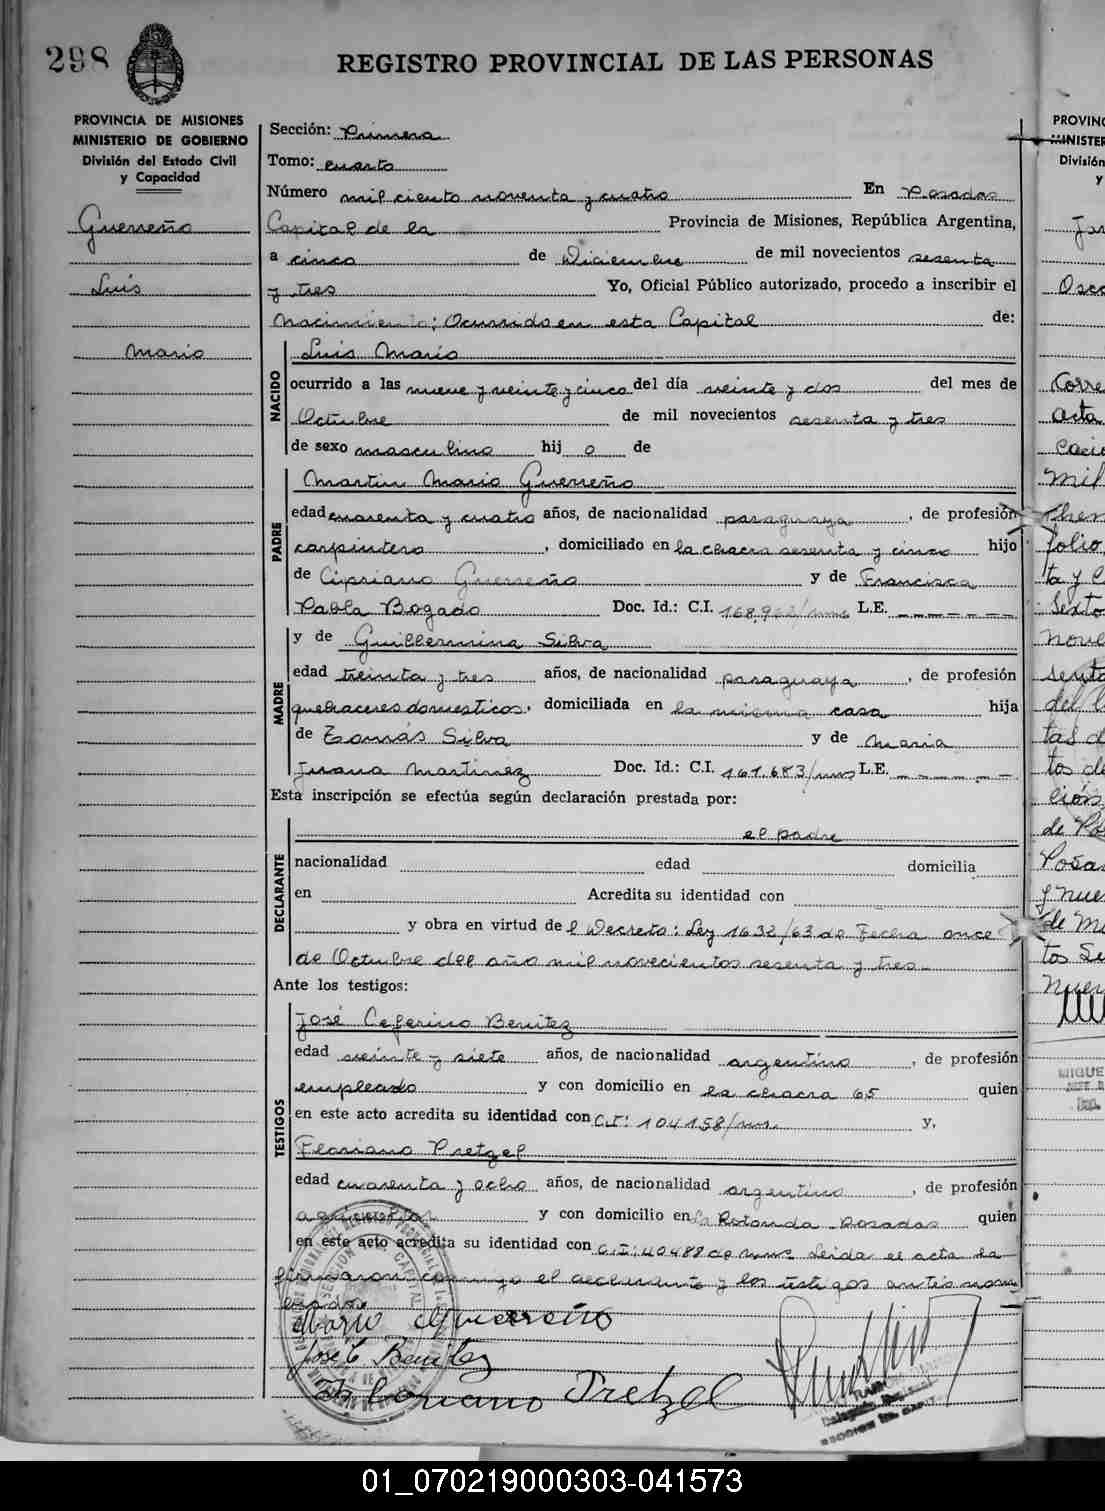 298
REGISTRO PROVINCIAL DE LAS PERSONAS
PROVINCIA DE MISIONES
MINISTERIO DE GOBIERNO
División del Estado Civil
y Capacidad
Guerreño
Luis
Mario
Sección: Primera
Tomo: cuarto
Número mil ciento noventa y cuatro En Posadas
Capital de la Provincia de Misiones, República Argentina,
a cinco de Diciembre de mil novecientos sesenta
y tres Yo, Oficial Público autorizado, procedo a inscribir el
Nacimiento; Ocurrido en esta Capital de:
NACIDO
Luis Mario
ocurrido a las nueve y veinte y cinco del día veinte y dos del mes de
Octubre de mil novecientos sesenta y tres
de sexo masculino hij o de
PADRE
Martin Mario Guerreño
edad cuarenta y cuatro años, de nacionalidad paraguaya, de profesión
carpintero, domiciliado en la chacra sesenta y cinco hijo
de Cipriano Guerreño y de Francisca
Pabla Bogado Doc. Id.: C.I. 168.962/mns L.E. _ _ _ _ _ _ _
y de Guillermina Silva
MADRE
edad treinta y tres años, de nacionalidad paraguaya, de profesión
quehaceres domesticos, domiciliada en la misma casa hija
de Tomás Silva y de Maria
Juana Martinez Doc. Id.: C.I. 161.683/mns L.E. _ _ _ _ _ _
Esta inscripción se efectúa según declaración prestada por:
DECLARANTE
el padre
nacionalidad edad domicilia
en Acredita su identidad con
y obra en virtud de l Decreto: Ley 1632/63 de Fecha once
de Octubre del año mil novecientos sesenta y tres
Ante los testigos:
TESTIGOS
José Ceferino Benitez
edad veinte y siete años, de nacionalidad argentino, de profesión
empleado y con domicilio en la chacra 65 quien
en este acto acredita su identidad con C.I: 104158/mns. y,
Floriano Pretzel
edad cuarenta y ocho años, de nacionalidad argentino, de profesión
agricultor y con domicilio en la Rotonda Posadas quien
en este acto acredita su identidad con C.I: 40488 de mns Leida el acta la
firmaron conmigo el declarante y los testigos antes nom
brados
Mario Guerreño
José C Benitez
Floriano Pretzel
PROVINC
MINISTER
División
y
Osca
Corre
acta
mil
folio
ta y c
Sexto
nove
senta
del l
tas d
tos de
ción
de Po
Posa
y nue
de Mi
tos Se
nuev
MIGUE
01_070219000303-041573